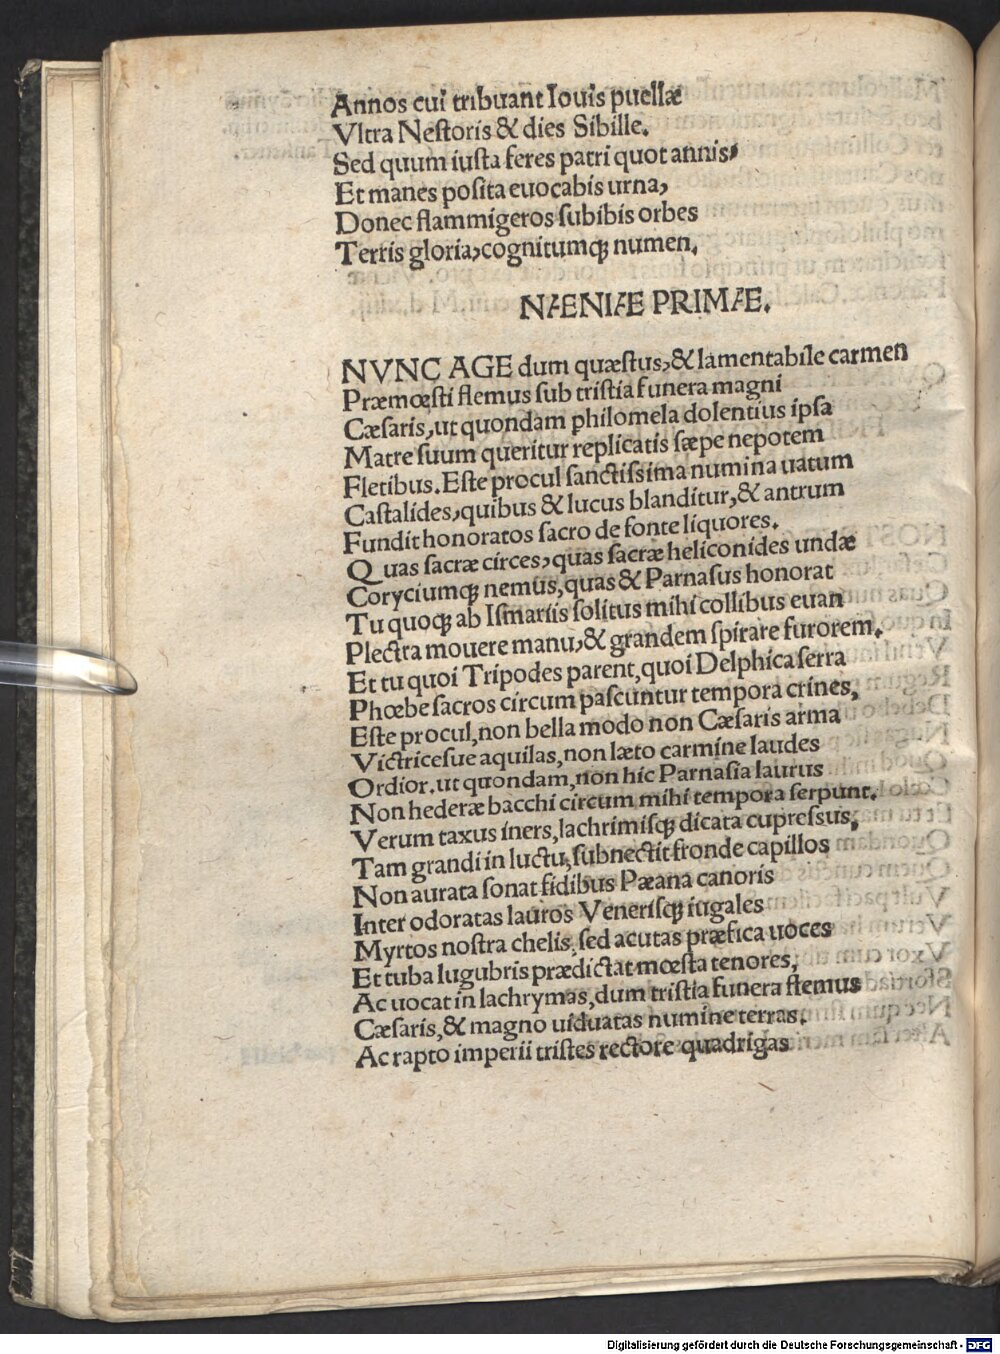 Annos cui tribuant Iouis puellæ
Vltra Nestoris & dies Sibille.
Sed quum iusta feres patri quot annis,
Et manes posita euocabis urna,
Donec flammigeros subibis orbes
Terris gloria, cognitumqꝫ numen.
NÆNIÆ PRIMÆ.
NVNC AGE dum quæstus, & lamentabile carmen
Præmœsti flemus sub tristia funera magni
Cæsaris, ut quondam philomela dolentius ipsa
Matre suum queritur replicatis sæpe nepotem
Fletibus. Este procul sanctissima numina uatum
Castalides, quibus & lucus blanditur, & antrum
Fundit honoratos sacro de fonte liquores.
Quas sacræ circes, quas sacræ heliconides undæ
Coryciumqꝫ nemus, quas & Parnasus honorat
Tu quoqꝫ ab Ismariis solitus mihi collibus euan
Plectra mouere manu, & grandem spirare furorem.
Et tu quoi Tripodes parent, quoi Delphica serra
Phœbe sacros circum pascuntur tempora crines,
Este procul, non bella modo non Cæsaris arma
Victricesue aquilas, non læto carmine laudes
Ordior. ut quondam, non hic Parnasia laurus
Non hederæ bacchi circum mihi tempora serpunt.
Verum taxus iners, lachrimisqꝫ dicata cupressus,
Tam grandi in luctu, subnectit fronde capillos
Non aurata sonat fidibus Pæana canoris
Inter odoratas lauros Venerisqꝫ iugales
Myrtos nostra chelis, sed acutas præfica uoces
Et tuba lugubris prædictat mœsta tenores,
Ac uocat in lachrymas, dum tristia funera flemus
Cæsaris, & magno uiduatas numine terras.
Ac rapto imperii tristes rectore quadrigas
Digitalisierung gefördert durch die Deutsche Forschungsgemeinschaft - DFG